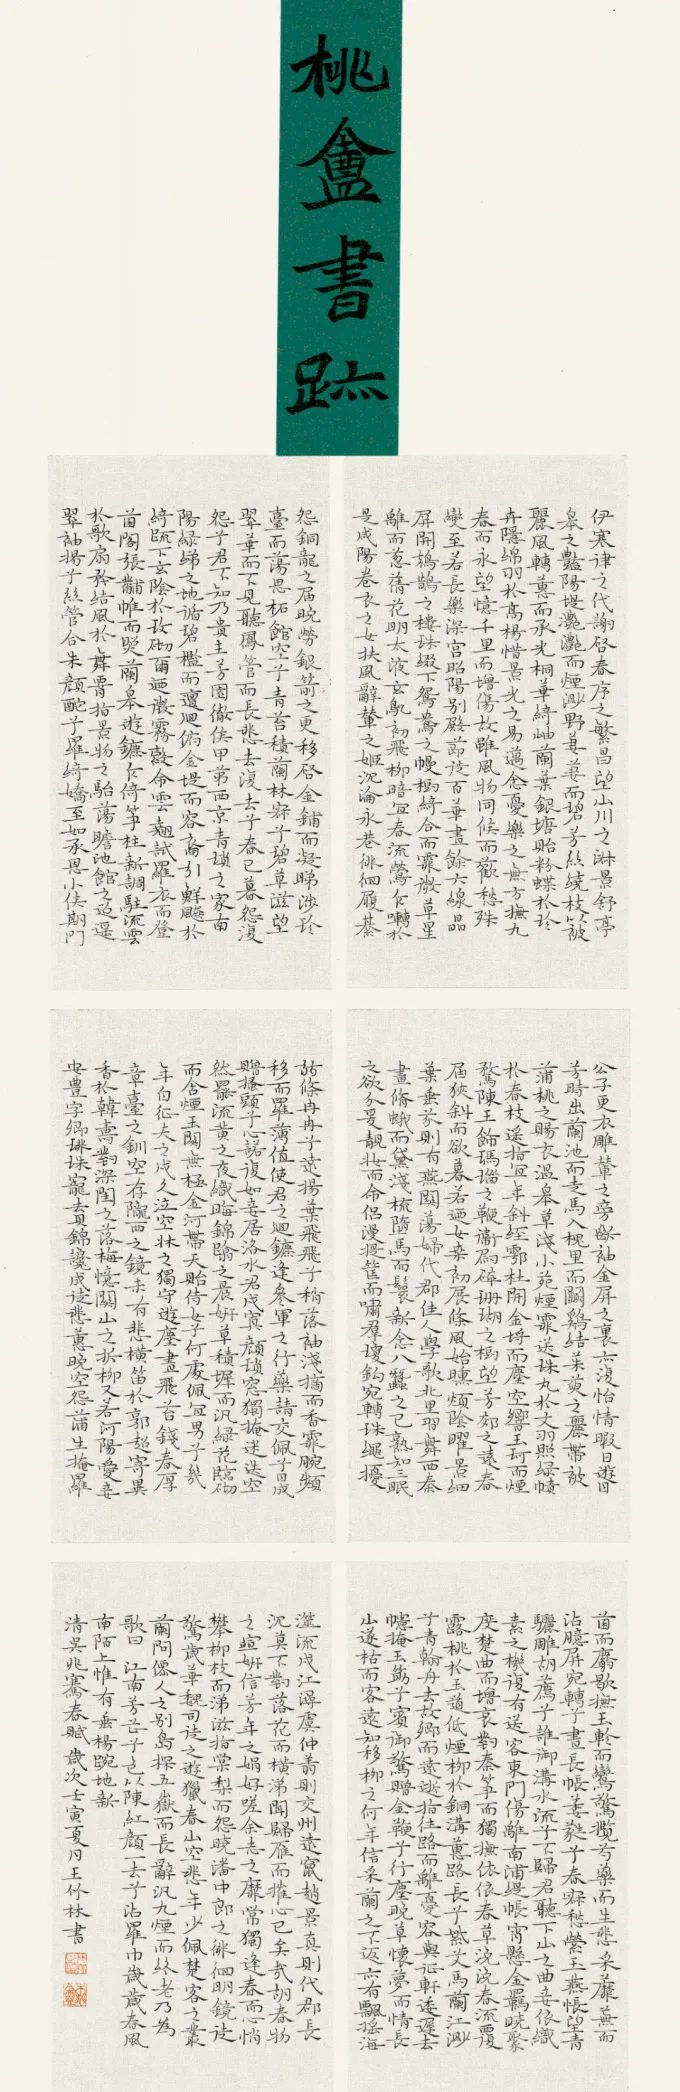 桃盦書跡
伊寒律之代謝啓春序之繁昌望山川之淋景舒亭
皋之豔陽堤灧灧而煙渺野萋萋而碧芳絲繞枝以簸
麗風轉蕙而承光桐華綺岫蘭葉銀塘貽粉蝶於珍
卉隱綿羽於高楊惜景光之易邁念憂樂之無方撫九
春而永望憶千里而增傷故雖風物同候而歡愁殊
變至若長樂深宮昭陽別殿節设百華晝餘六線晶
屏開鳷鵲之樓珠綴下鴛鴦之幔楊綺合而霏微草星
離而蔥蒨花明太液玄鳥初飛柳暗宜春流鶯乍囀於
是咸陽卷衣之女扶風辭輦之姬沉淪永巷徘徊履綦
怨銅龍之屆晚勞銀箭之更移啓金鋪而凝睇涉玲
臺而蕩思柘館空兮青苔積蘭林寂兮碧草滋望
翠華而不見聽鳳管而長悲去復去兮春已暮怨復
怨兮君不知乃貴主芳園徹侯甲第西京青瑣之家南
陽綠綈之地循碧檻而邅迴俯金堤而容裔引鮮飈於
綺疏下玄陰於玫砌爾廼微霧縠命雲翹試羅衣而登
茵閣張黼帷而燕蘭皋遊鑣乍停箏柱新調駐流雲
於歌扇矜結風於舞霄指景物之駘蕩瞻池館之迢遥
翠袖揚兮絲管合朱顏酡兮羅綺嬌至如承恩小侯期門
公子更衣雕輦之旁袖金屏之裏亦復怡情暇日遊目
芳時出蘭池而走馬入槐里而鬭鷄結茱萸之麗帶披
蒲桃之賜衣溫皋草淺小苑煙霏送珠丸於文羽照綠幘
於春枝遙指宜年斜經鄠杜開金埒而塵空響玉珂而煙
騖陳王飾瑪瑙之鞭衛尉碎珊瑚之樹望芳郊之遠春
屆狹斜而欲暮若廼女桑初展條風始曛頹陰曜景細
葉垂芬則有燕閨蕩婦代郡佳人學歌北里習舞西秦
畫脩蛾而黛淺梳墮馬而鬟新念八蠶之已熟知三眠
之欲分爰靚妝而命侶漫提筐而嘯羣瓊鈎宛轉珠繩擾
條冉冉兮遠揚葉飛飛兮稍落袖淺摛而香霏腕頻
移而羅薄值使君之廻鑣逢參軍之行藥請交佩兮目成
贈搔頭兮心諾復如妾居洛水君戍寘顏瑣窓獨掩迷迭空
然罷流黃之夜織晦錦之晨妍草積墀而汎綠花臨砌
而含煙玉關無極金河帶天貽侍女兮何處佩宜男兮幾
年白征夫之戍久泣空牀之獨守遊塵晝飛苔錢春厚
章臺之釧空存隴西之鏡未有悲橫笛於郭超寄異
香於韓壽對深閨之落梅憶關山之折柳又若河陽愛妾
安豊字卿琲珠寵去貝錦讒成徒悲蕙晚空怨蒲生掩羅
茵而麝歇撫玉軫而鸞驚攬芍藥而生悲采蘼蕪而
沾臆屏宛轉兮晝長帳萎蕤兮春寂愁縈玉燕悵望青
驪雕胡薦兮誰御溝水流兮不歸君聽下山之曲妾依織
素之機復有送客東門傷離南浦縵帳宵懸金羈曉聚
度楚曲而增哀對秦箏而獨撫依依春草浼浼春流覆
露桃於玉道低煙柳於銅溝蕙路長兮紫艾馬蘭江渺
兮青翰舟去故鄉而遠逝指往路而離憂容與征軒逶遲去
幰掩玉觴兮賓御驚贈金鞭兮行塵晚草懷夢而情長
山遂枯而客遠知移柳之何年信采蘭之不返亦有飄搖海
澨流戍江潯虞仲翔則交州遠竄趙景真則代郡長
沉莫不對落花而橫涕聞歸雁而摧心已矣哉胡春物
之暄妍信芳年之娟好嗟余志之靡常獨逢春而心悄
攀柳枝而涕滋指棠梨而怨曉潘中郎之徘徊明鏡徒
驚歲華魏司徒之遊獵春山空悲年少佩楚客之叢
蘭問僊人之別島探五嶽而長辭汎九煙而終老乃為
歌曰 江南芳芷兮色以陳紅顏去兮沾羅巾歲歲春風
南陌上惟有垂楊踠地新
清吳兆騫春賦 歲次壬寅夏月王竹林書